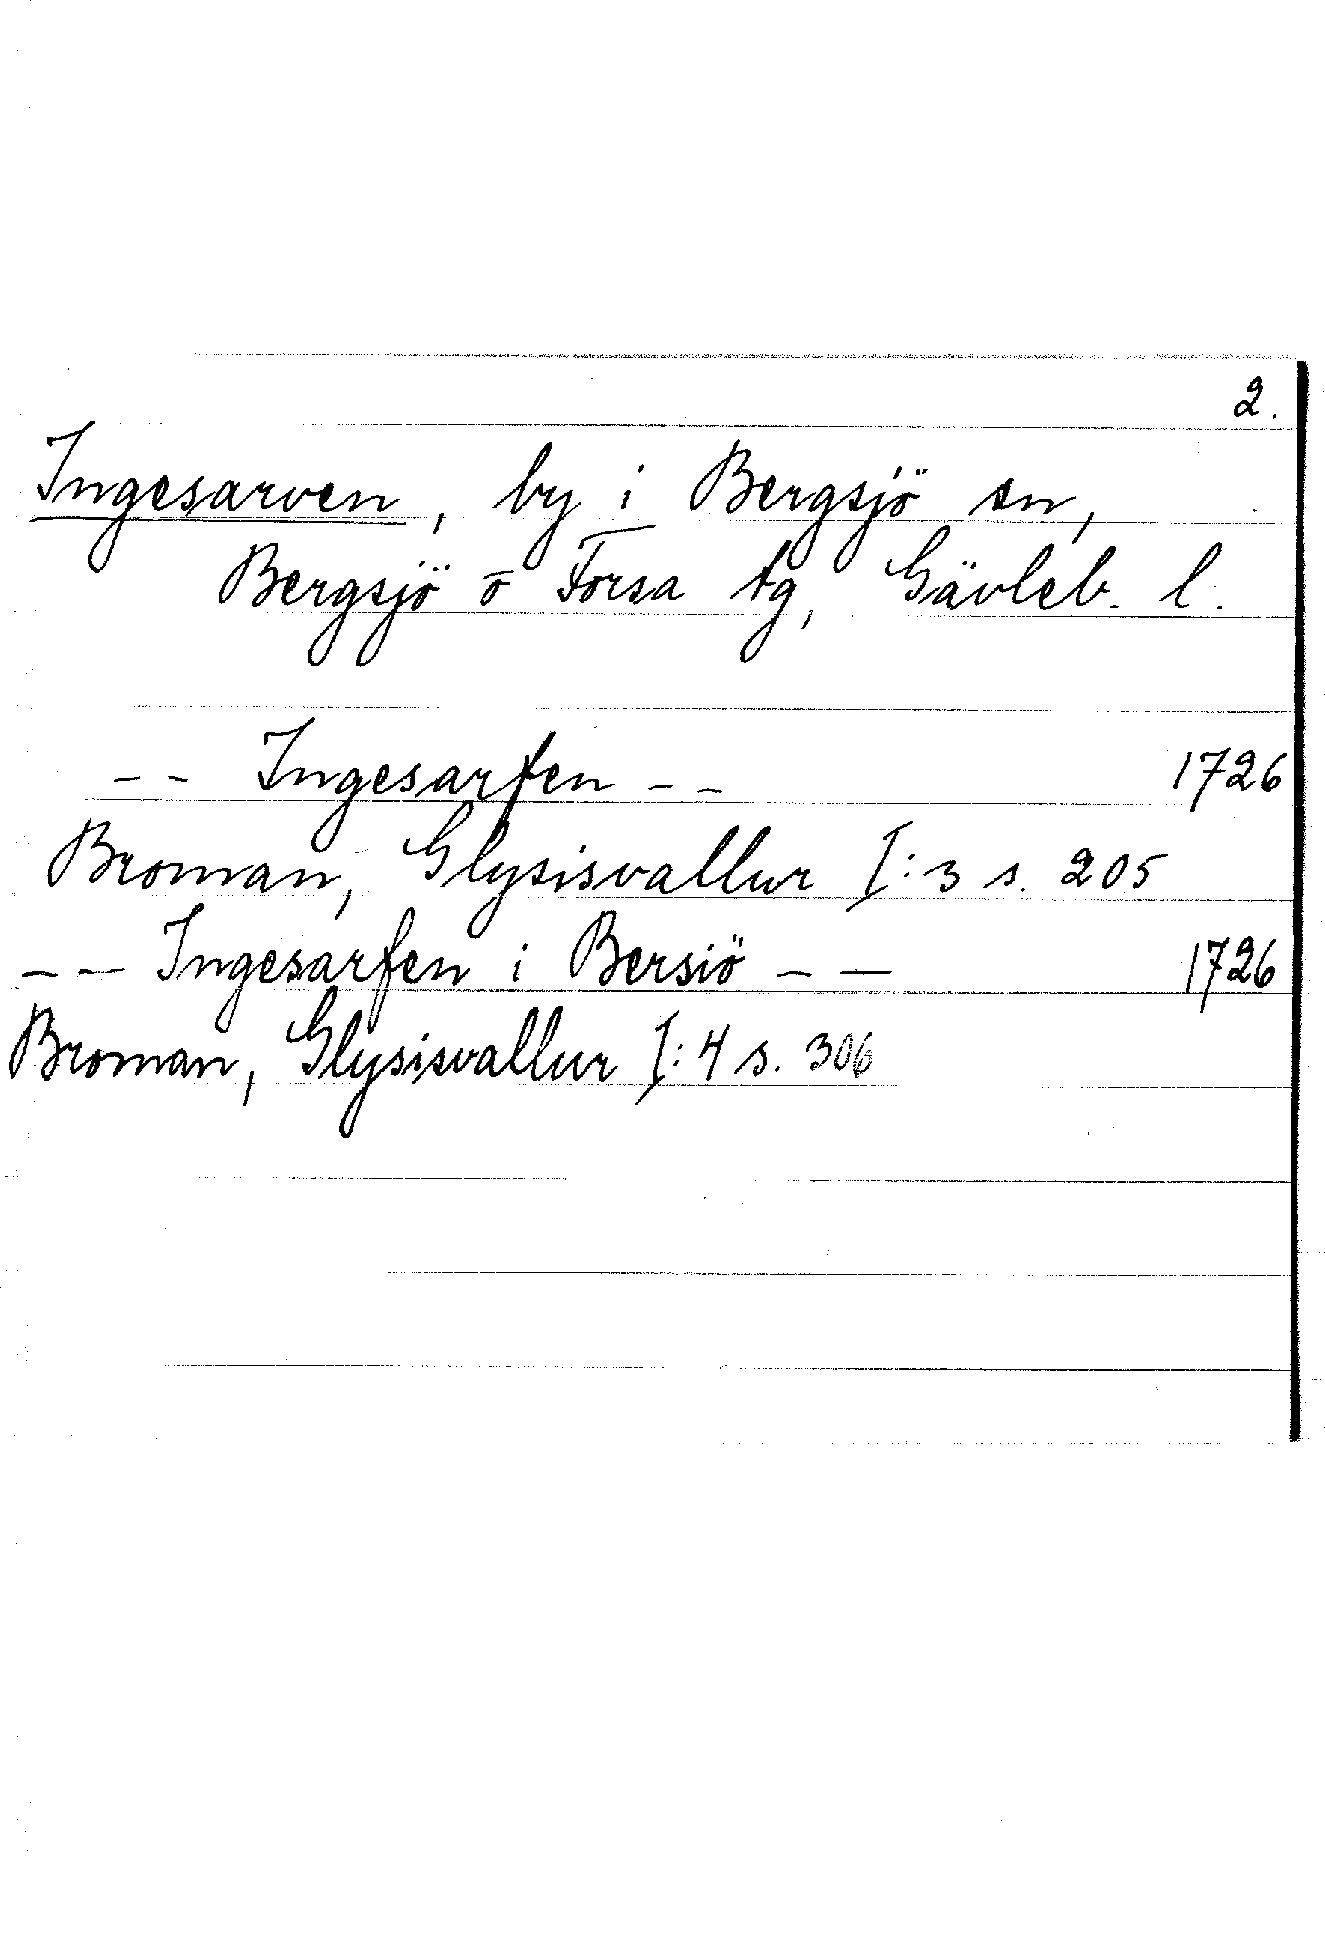 2.
Ingesarven, by i Bergsjö sn,
Bergsjö o Forsa tg, Gävleb. l.
-- Ingesarfen -- 1726
Broman, Glysisvallur I:3 s. 205
-- Ingesarfen i Bersiö -- 1726
Broman, Glysisvallur I:4 s. 306